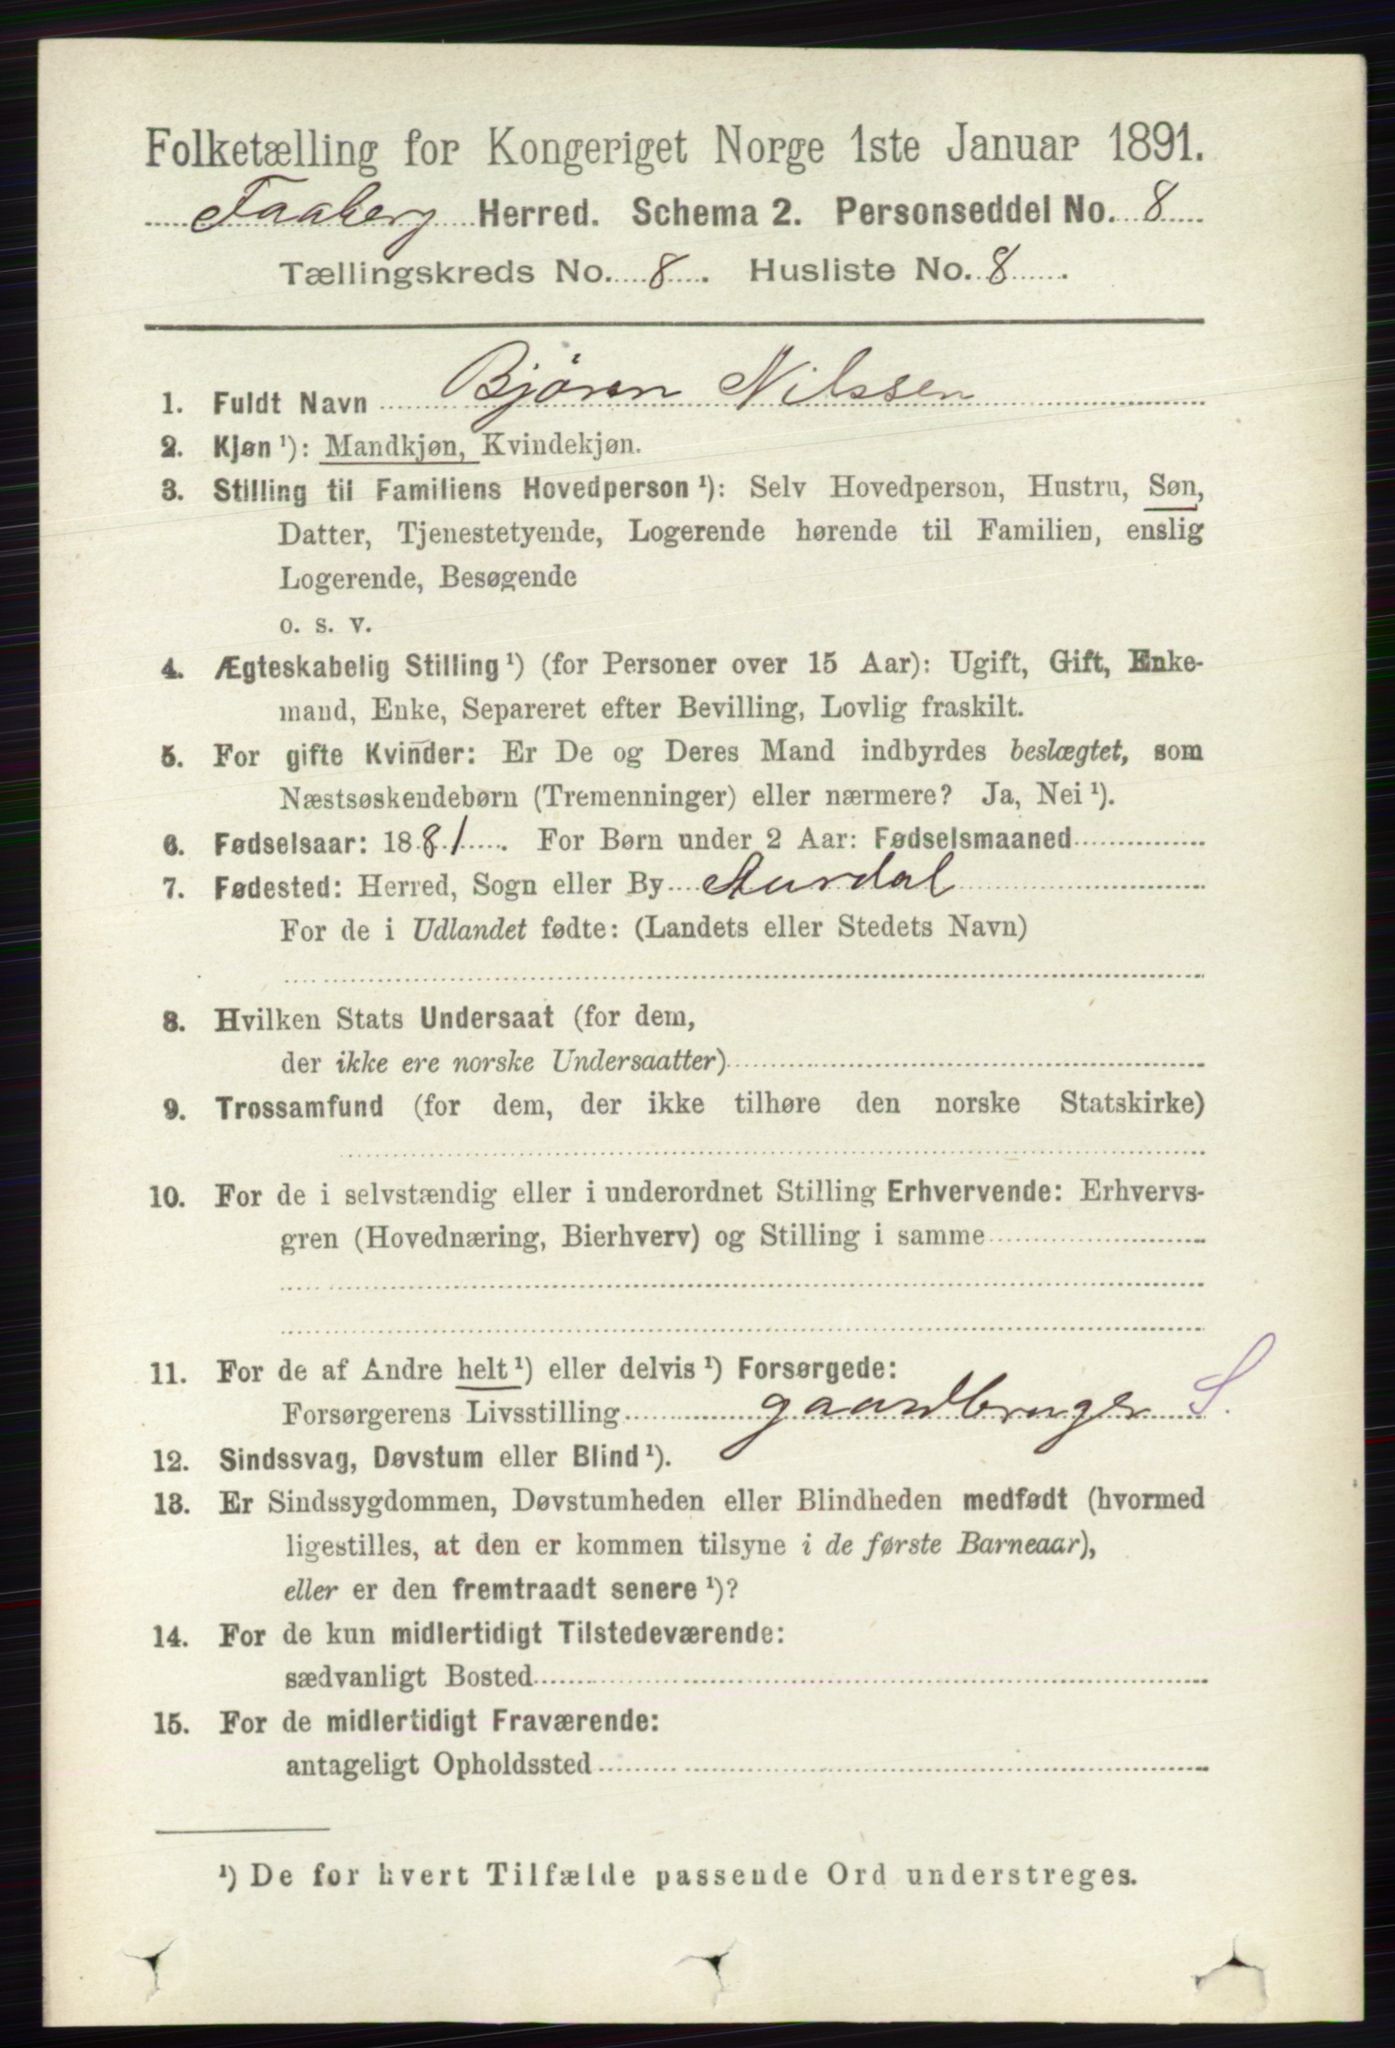 Folketælling for Kongeriget Norge 1ste Januar 1891.
Faaberg Herred. Schema 2. Personseddel No. 8
Tællingskreds No. 8. Husliste No. 8.
1. Fuldt Navn Bjørn Nilssen
2. Kjøn ¹): Mandkjøn, Kvindekjøn.
3. Stilling til Familiens Hovedperson ¹): Selv Hovedperson, Hustru, Søn,
Datter, Tjenestetyende, Logerende hørende til Familien, enslig
Logerende, Besøgende
o. s. v.
4. Ægteskabelig Stilling ¹) (for Personer over 15 Aar): Ugift, Gift, Enke-
mand, Enke, Separeret efter Bevilling, Lovlig fraskilt.
5. For gifte Kvinder: Er De og Deres Mand indbyrdes beslægtet, som
Næstsøskendebørn (Tremenninger) eller nærmere? Ja, Nei ¹).
6. Fødselsaar: 1881. For Børn under 2 Aar: Fødselsmaaned
7. Fødested: Herred, Sogn eller By Aurdal
For de i Udlandet fødte: (Landets eller Stedets Navn)
8. Hvilken Stats Undersaat (for dem,
der ikke ere norske Undersaatter)
9. Trossamfund (for dem, der ikke tilhøre den norske Statskirke)
10. For de i selvstændig eller i underordnet Stilling Erhvervende: Erhvervs-
gren (Hovednæring, Bierhverv) og Stilling i samme
11. For de af Andre helt ¹) eller delvis ¹) Forsørgede:
Forsørgerens Livsstilling gaardbruger S.
12. Sindssvag, Døvstum eller Blind ¹).
13. Er Sindssygdommen, Døvstumheden eller Blindheden medfødt (hvormed
ligestilles, at den er kommen tilsyne i de første Barneaar),
eller er den fremtraadt senere ¹)?
14. For de kun midlertidigt Tilstedeværende:
sædvanligt Bosted
15. For de midlertidigt Fraværende:
antageligt Opholdssted
¹) De for hvert Tilfælde passende Ord understreges.